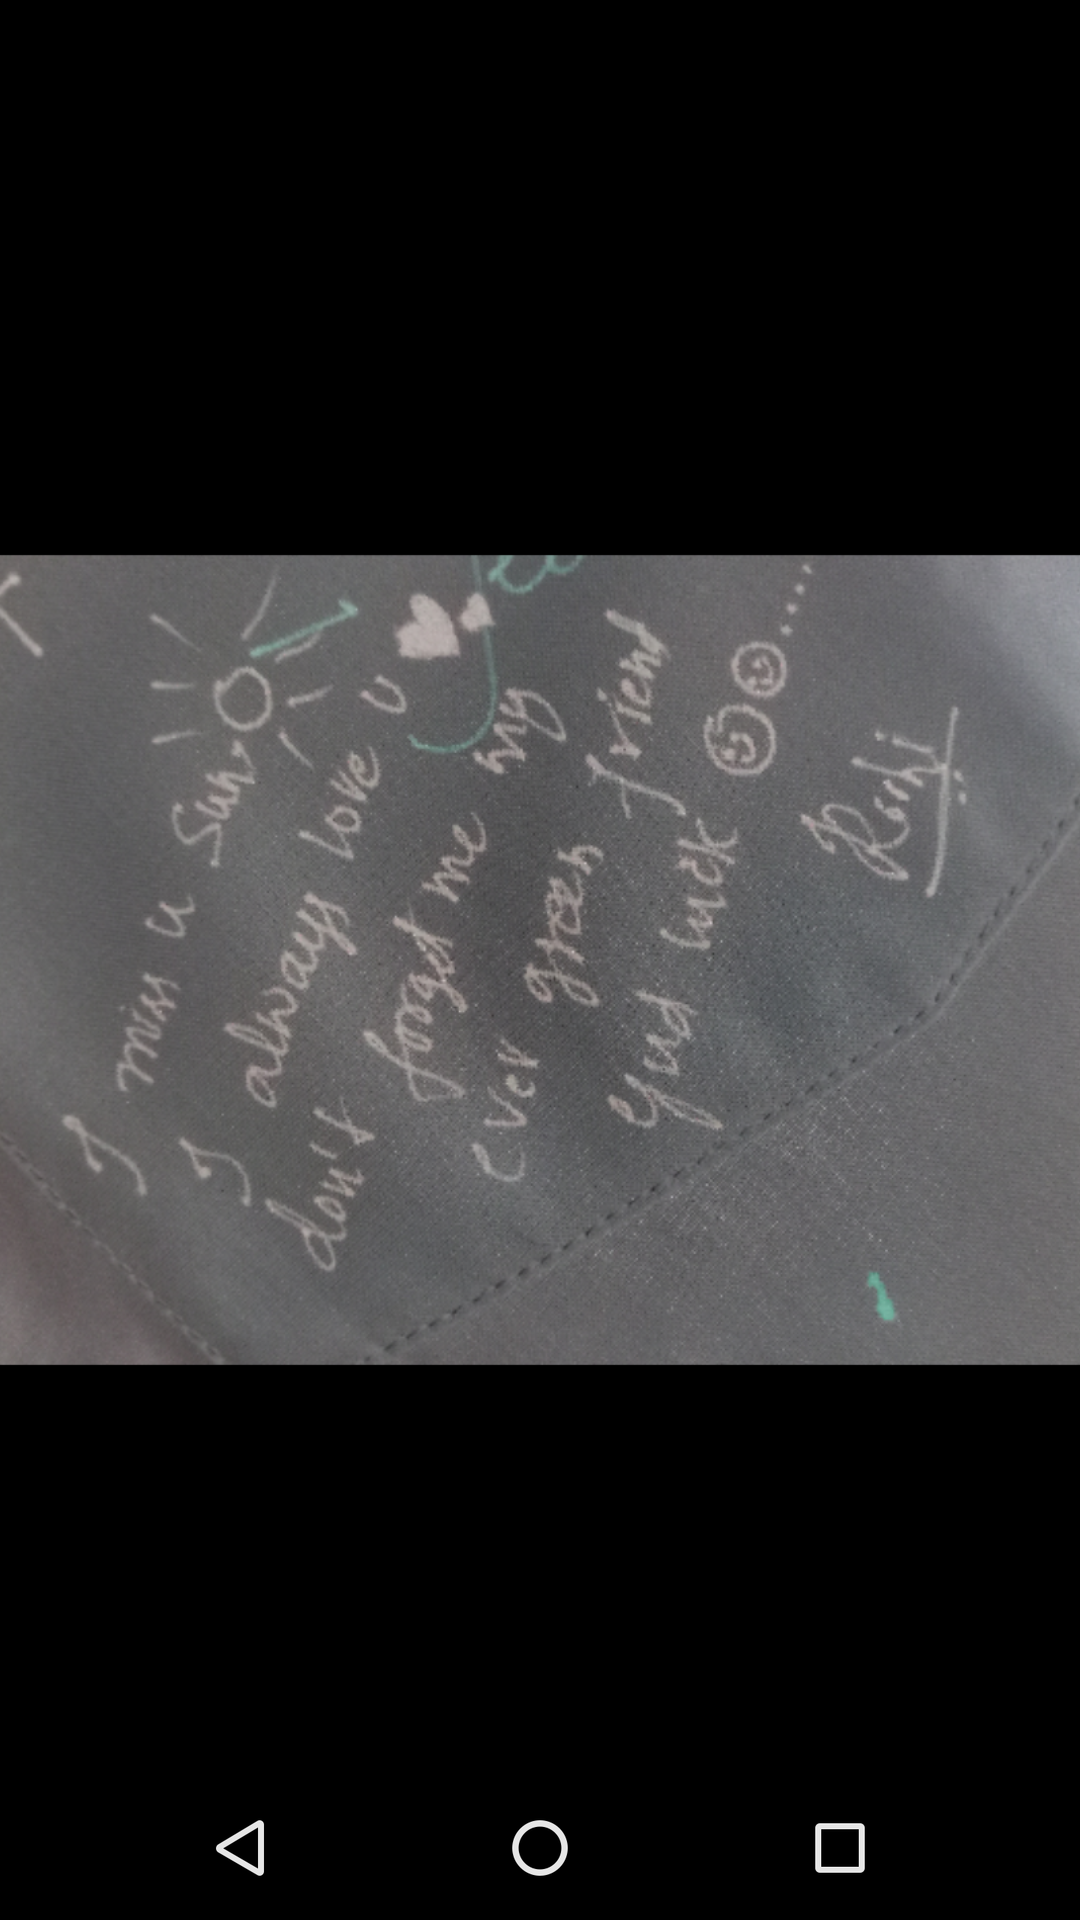 I miss u Sun
I always love u
don't forget me my
ever green friend
Gud luck